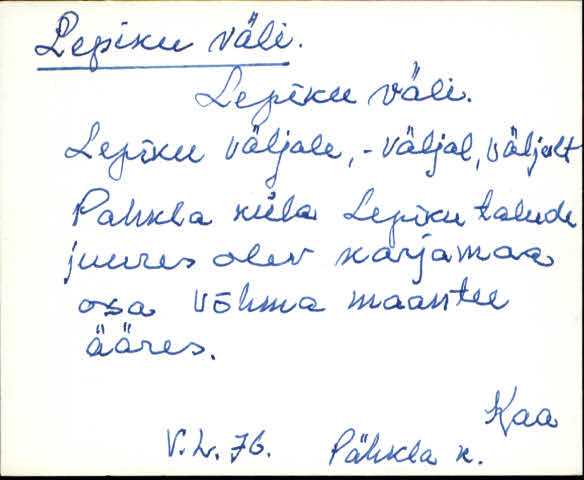 Lepiku väli.
Lepiku väli.
Lepiku väljale, - väljal, väljalt
Pahkla küla Lepiku talude
juures olev karjamaa
osa Võhma maantee
ääres.
Kaa
V. L. 76. Pähkla k.